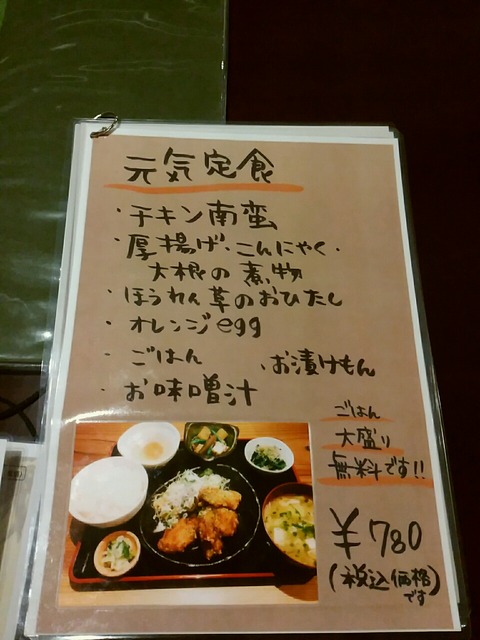 元気定食
・チキン南蛮
・厚揚げ・こんにゃく・
大根の煮物
・ほうれん草のおひたし
・オレンジegg
・ごはん
・お漬けもん
・お味噌汁
ごはん
大盛り
無料です!!
¥780
(税込価格
です)